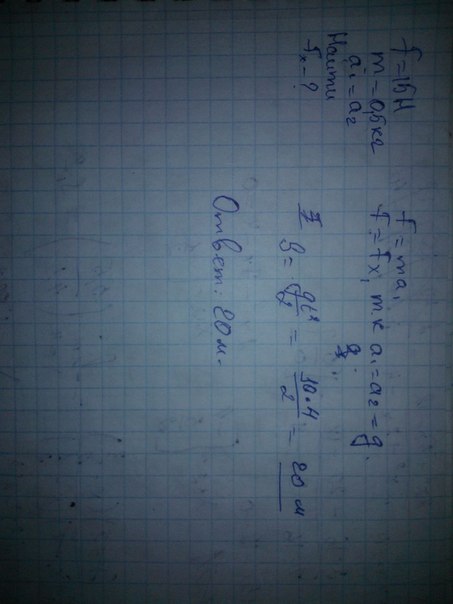 f = 15 Н
m = 0,5 кг
a₁ = a₂
Найти
fₓ - ?
f = ma,
f = fₓ, т к a₁ = a₂ = g.
II
S = gt²/2 = 10·4/2 = 20 м
Ответ: 20 м.